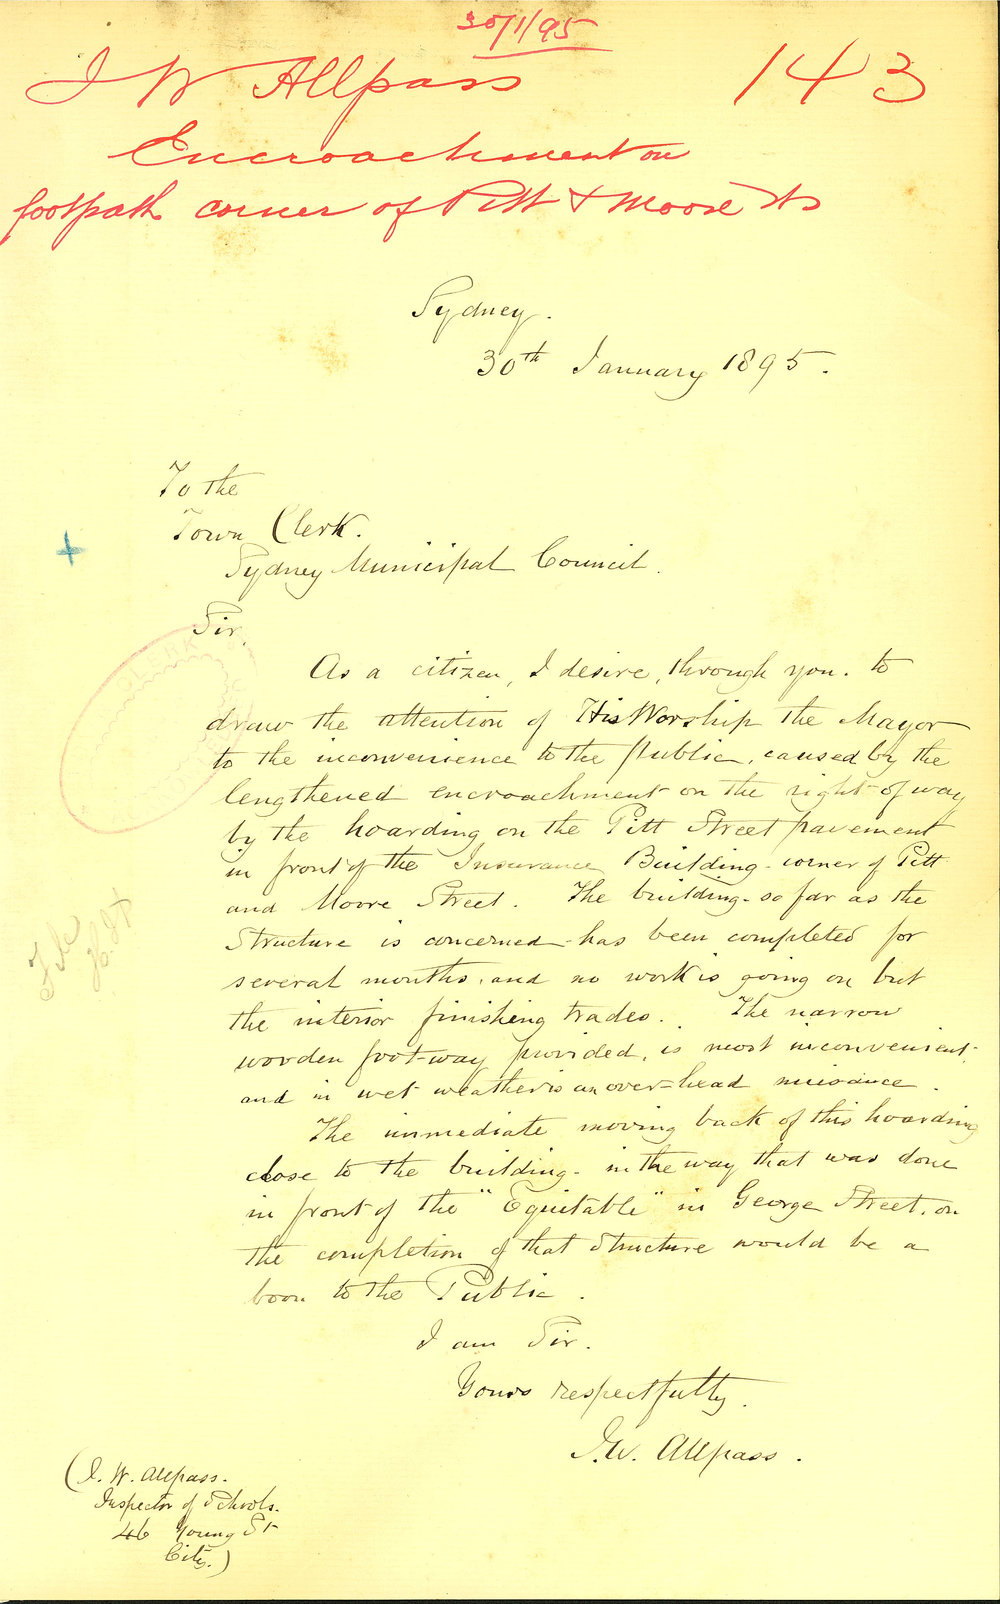 30/1/95
J W Allpass 143
Encroachment on
footpath corner of Pitt & Moore Sts
Sydney.
30th January 1895.
To the
Town Clerk.
Sydney Municipal Council.
Sir,
As a citizen, I desire, through you. to
draw the attention of His Worship the Mayor
to the inconvenience to the public, caused by the
lengthened encroachment on the right of way
by the hoarding on the Pitt Street pavement
in front of the Insurance Building - corner of Pitt
and Moore Street. The building - so far as the
Structure is concerned - has been completed for
several months, and no work is going on but
the interior finishing trades. The narrow
wooden foot-way provided, is most inconvenient -
and in wet weather is an over-head nuisance.
The immediate moving back of this hoarding
close to the building - in the way that was done
in front of the "Equitable" in George Street, on
the completion of that structure would be a
boon to the Public.
I am Sir.
Yours respectfully.
J.W. Allpass.
(J. W. Allpass.
Inspector of Schools.
46 Young St
City.)
CLERK